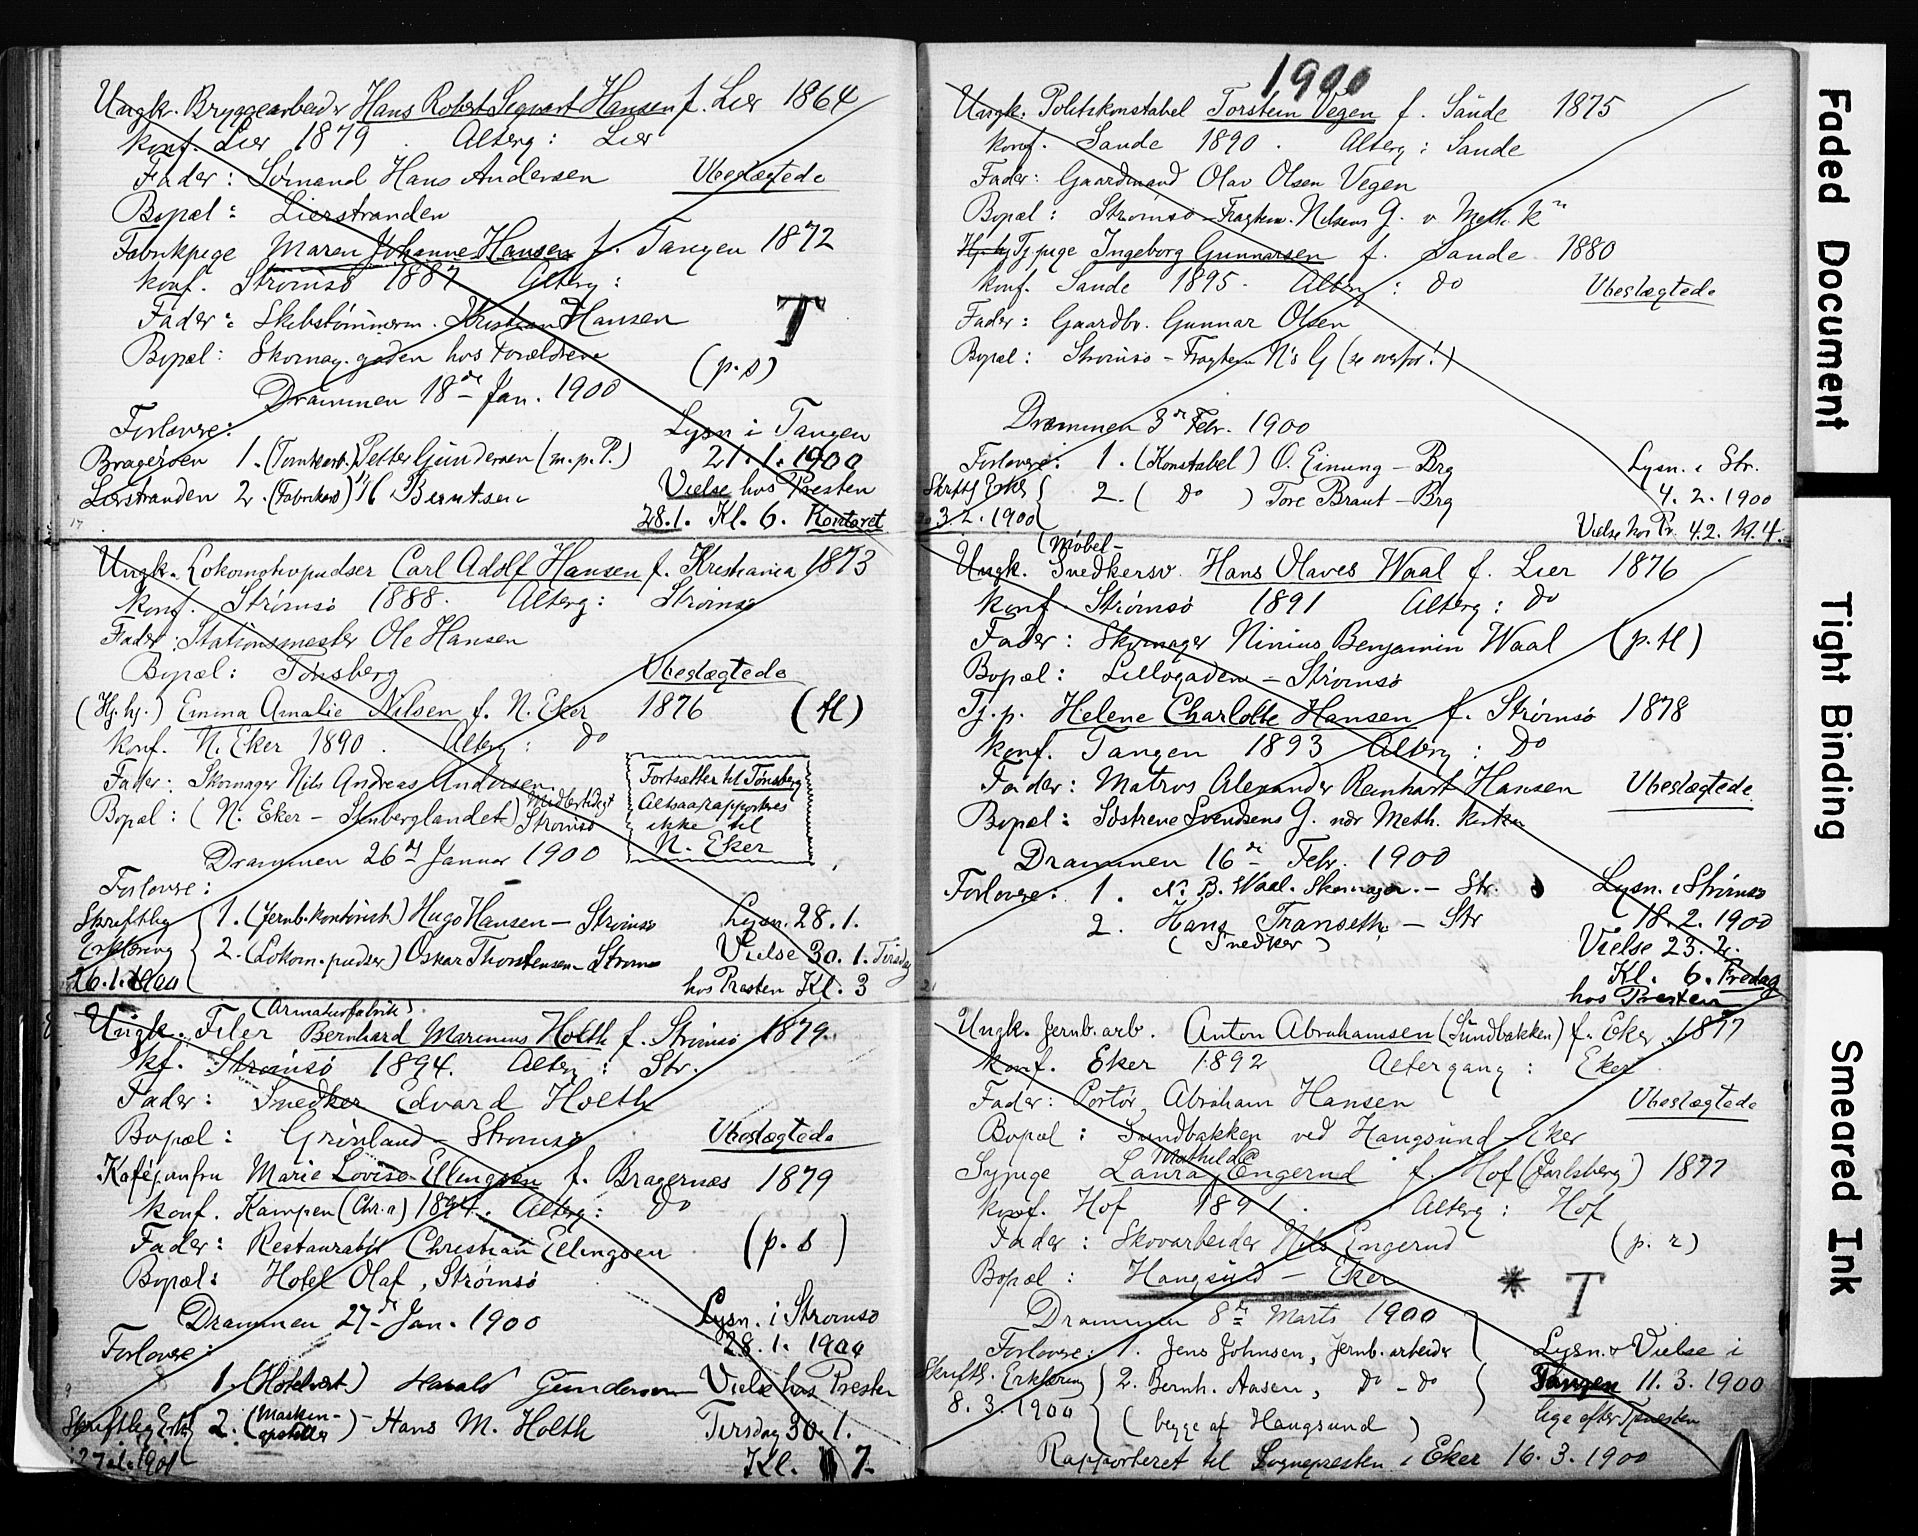 Ungk. Bryggearbeider Hans Robert Sigvart Hansen f. Lier 1864
konf. Lier 1879. Alterg: Lier
Fader: Sømand Hans Andersen Ubeslægtede
Bopæl: Lierstranden
Fabrikpige Maren Johanne Hansen f. Tangen 1872
konf. Strømsø 1887 Alterg:
Fader: Skibstømmerm. Kristian Hansen T
Bopæl: Skomag.gaden hos Forældrene (p.s)
Drammen 18de Jan. 1900
Forlovere: Lysn i Tangen
Bragersøen 1. (Tomtearb.) Petter Gundersen (m.p.P.) 21.1.1900
Lierstranden 2. (Fabrikarb) Berntsen Vielse hos Presten
17 28.1. Kl. 6. Kontoret
Ungk. Lokomotivpudser Carl Adolf Hansen f. Kristiania 1873
konf. Strømsø 1888. Alterg: Strømsø
Fader: Stationsmester Ole Hansen
Bopæl: Tønsberg Ubeslægtede
(Hj.hj.) Emma Amalie Nilsen f. N. Eker 1876 (H)
konf. N. Eker 1890. Alterg: do
Fader: Skomager Nils Andreas Andersen
Bopæl: (N. Eker - Stenberglandet) Midlertidigt Strømsø
Fortsætter til Tønsberg
Altsaa rapporteres
ikke til
N. Eker
Drammen 26de Januar 1900
Forlovere:
Skriftlig 1. (Jernb.kontorist) Hugo Hansen - Strømsø Lysn. 28.1.
Erklæring 2. (Lokom.pudser) Oskar Thorstensen - Strømsø Vielse 30.1. Tirsdag
26.1.1900 hos Presten Kl. 3
(Armaturfabrik)
Ungk. Filer Bernhard Marinius Holth f. Strømsø 1879.
kf. Strømsø 1894. Alterg: Str.
Fader: Snedker Edvard Holth
Bopæl: Grønland - Strømsø Ubeslægtede
Kaféjomfru Marie Lovise Ellingsen f. Bragernæs 1879
konf. Kampen (Chr.a) 1894. Alterg: do
Fader: Restauratør Christian Ellingsen (p.s)
Bopæl: Hotel Olaf, Strømsø
Drammen 27de Jan. 1900 Lysn. i Strømsø
Forlovere: 28.1.1900
1. (Hotelvært) Harald Gundersen Vielse hos Presten
Skriftlig Erkl. 2. (Maskinopstiller) - Hans M. Holth Tirsdag 30.1.
27.1.1900 Kl. 7.
1900
Ungk. Politikonstabel Torstein Vegen f. Sande 1875
konf. Sande 1890. Alterg: Sande
Fader: Gaardmand Olav Olsen Vegen
Bopæl: Strømsø - Fragtem. Nilsens G. v. Meth. K
Tj.pige Ingeborg Gunnarsen f. Sande 1880
konf. Sande 1895. Alterg: do Ubeslægtede
Fader: Gaardbr. Gunnar Olsen
Bopæl: Strømsø - Fragtem N's G (se ovenfor!)
Drammen 3die Febr. 1900
Forlovere: 1. (Konstabel) O. Einung - Brg Lysn. i Str.
Skriftl Erkl 2. (do) Tore Braut - Brg 4.2.1900
3.2.1900 Vielse hos Pr. 4.2. Kl. 4.
(Møbel-
Ungk. Snedkersv. Hans Olaves Waal f. Lier 1876
konf. Strømsø 1891 Alterg: do
Fader: Skomager Ninius Benjamin Waal (p. H)
Bopæl: Lillogaden - Strømsø
Tj.p. Helene Charlotte Hansen f. Strømsø 1878
konf. Tangen 1893 Alterg: do
Fader: Matros Alexander Reinhart Hansen Ubeslægtede
Bopæl: Søstrene Svendsens G. nær Meth. kirken
Drammen 16de Febr. 1900
Forlovere: 1. N. B. Waal. Skomager. - Str. Lysn. i Strømsø
2. Hans Transeth - Str 18.2.1900
(Snedker) Vielse 23.2.
Kl. 6. Fredag
21 hos Presten
Ungk. Jernb.arb. Anton Abrahamsen (Sundbakken) f. Eker. 1877
konf. Eker 1892 Altergang: Eker
Fader: Portør Abraham Hansen Ubeslægtede
Bopæl: Sundbakken ved Hangsund - Eker
Sypige Laura Mathilde Engerud f. Hof (Jarlsberg) 1877
konf. Hof 1891. Alterg: Hof
Fader: Skovarbeider Nils Engerud (p. r)
Bopæl: Hangsund - Eker * T
Drammen 8de Marts 1900
Forlovere: 1. Jens Johnsen, Jernb.arbeider Lysn. & Vielse i
Skriftl. Erklæring 2. Bernh. Aasen, do - do Tangen 11.3.1900
8.3.1900 (begge af Haugsund) lige efter Tjenesten
Rapporteret til Sognepresten i Eker 16.3.1900
Faded Document
Tight Binding
Smeared Ink